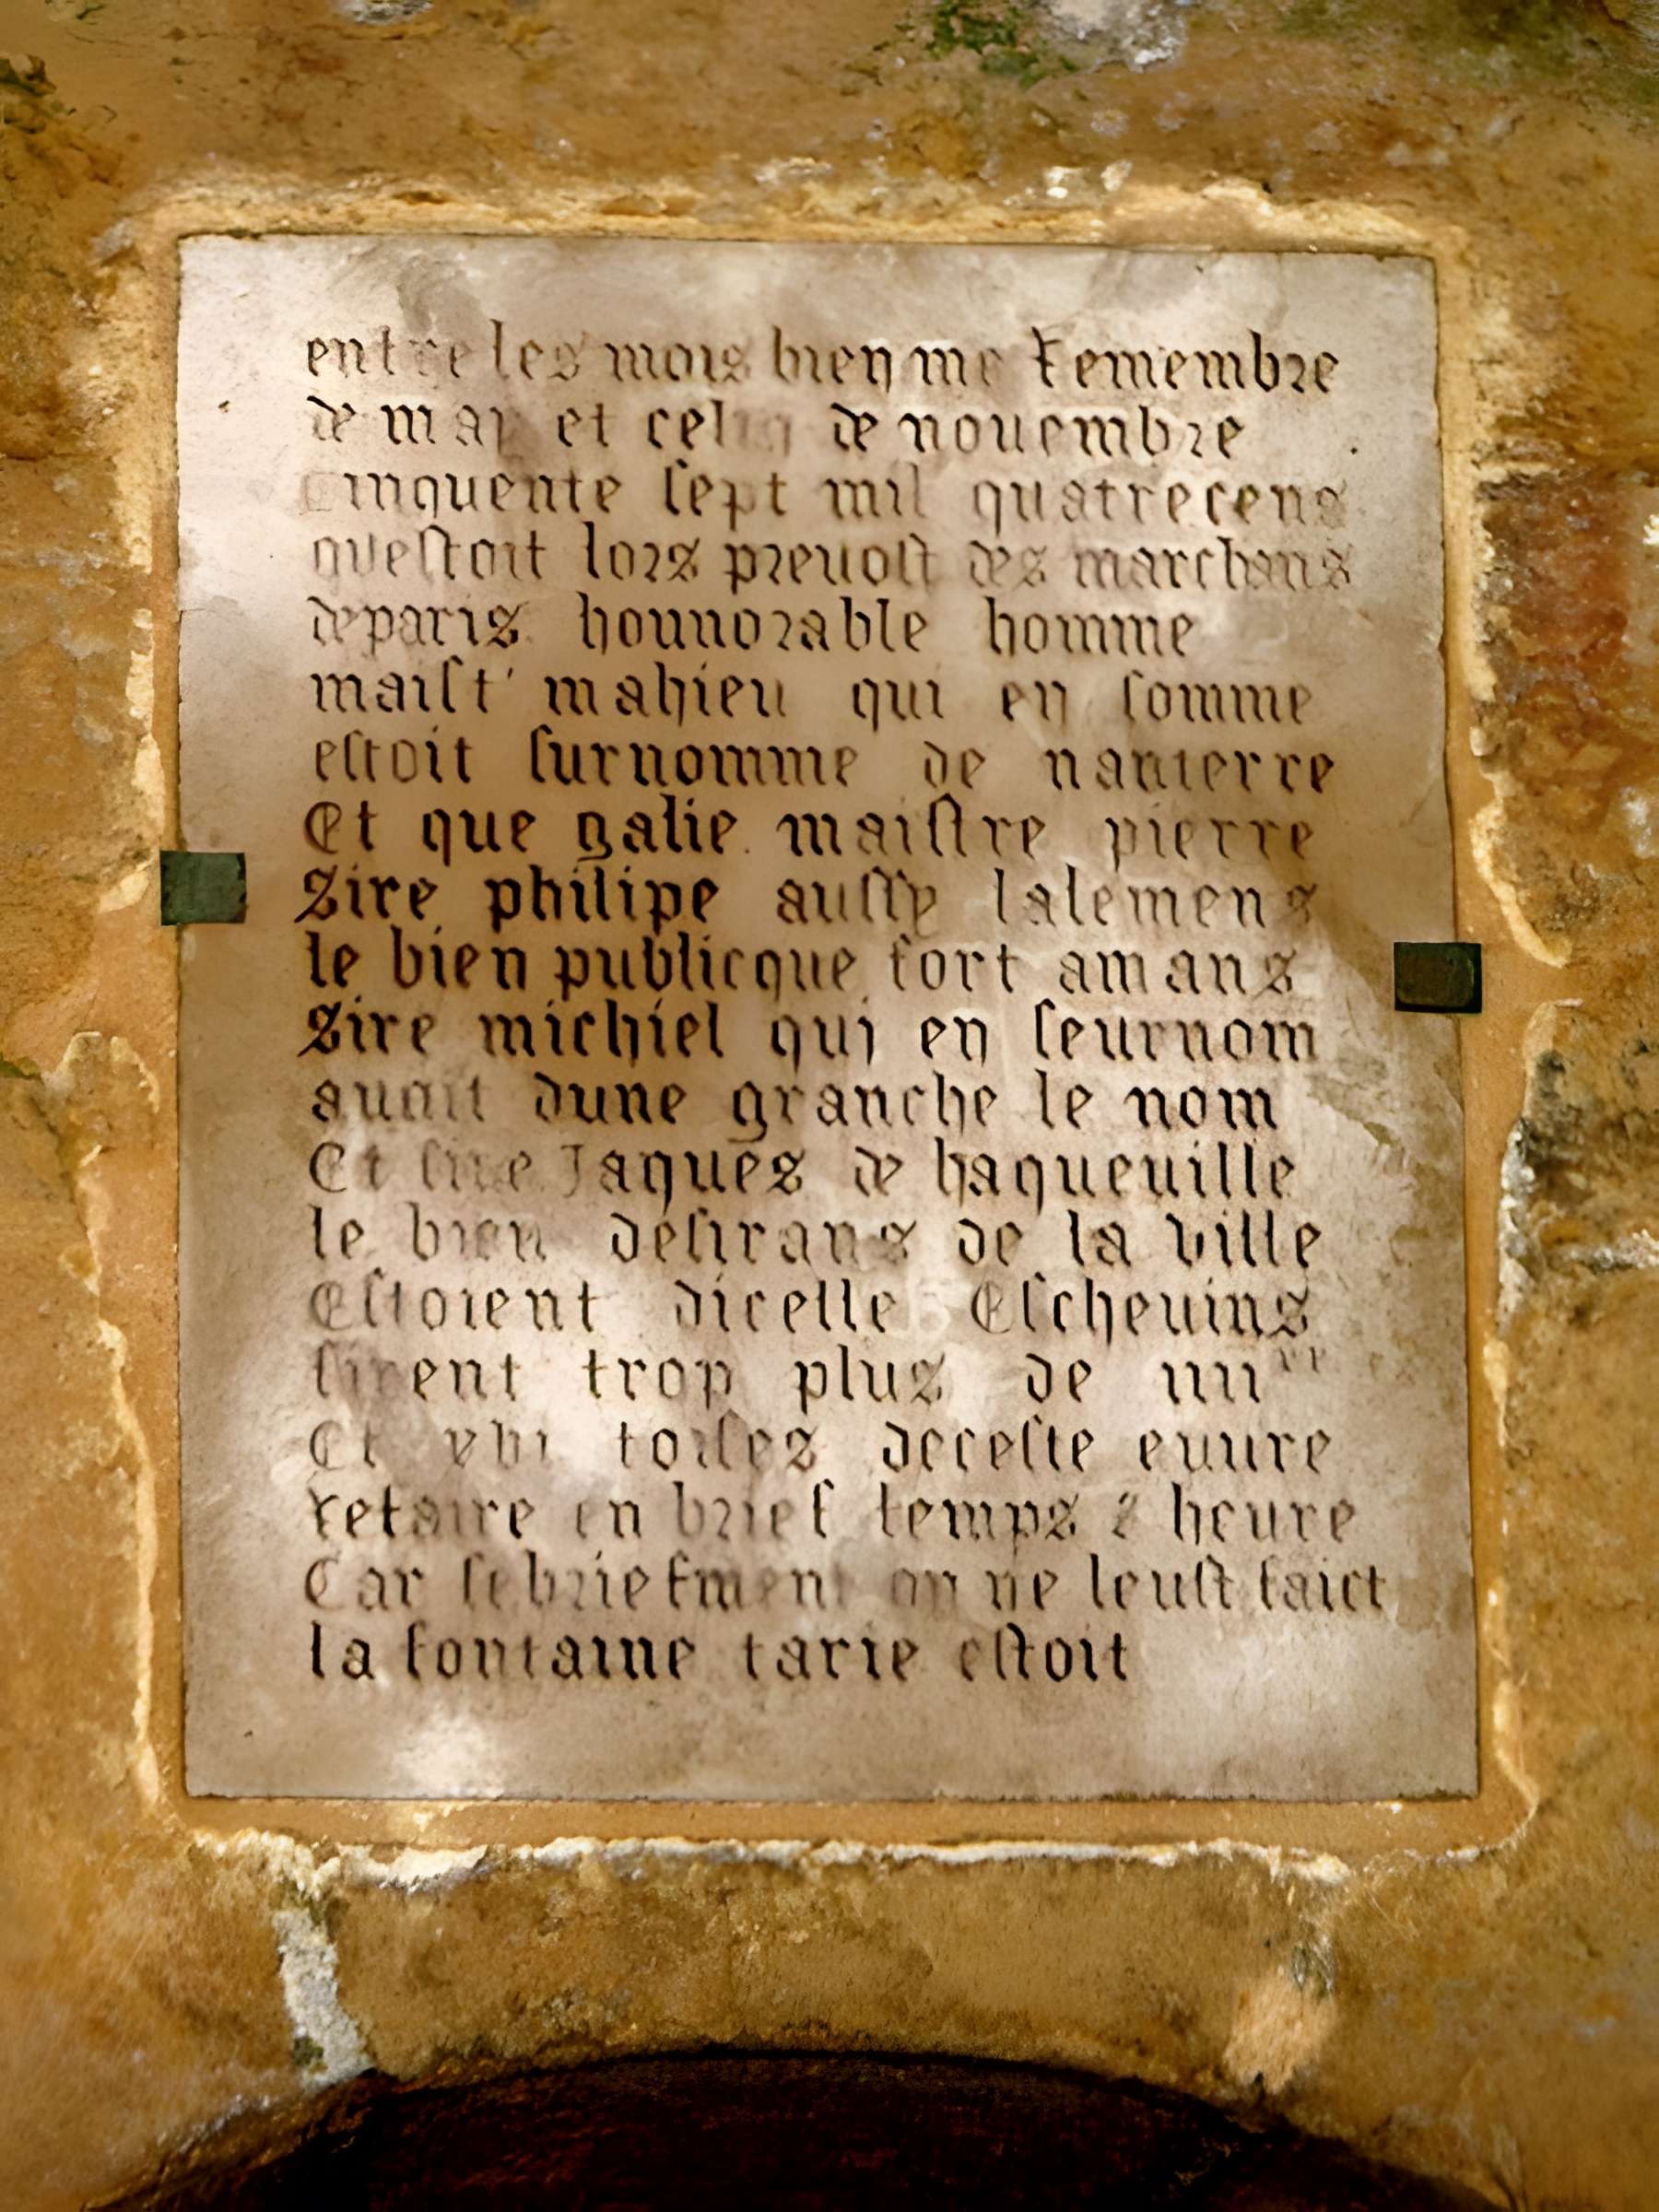 entre les mois bien me remembre
de may et celuy de nouembre
Cinquente sept mil quatrecens
questoit lors preuost des marchans
deparis hounorable homme
maist' mahieu qui en somme
estoit surnomme de nanterre
Et que galie maistre pierre
Sire philipe aussy lalemens
le bien publicque fort amans
Sire michiel qui en seurnom
auoit dune granche le nom
Et sire Jaques de haqueuille
le bien desirans de la ville
Estoient dicelle Escheuins
firent trop plus de iiii xx
Et xvi toises deceste euure
refaire en brief temps & heure
Car se briefment on ne leust faict
la fontaine tarie estoit